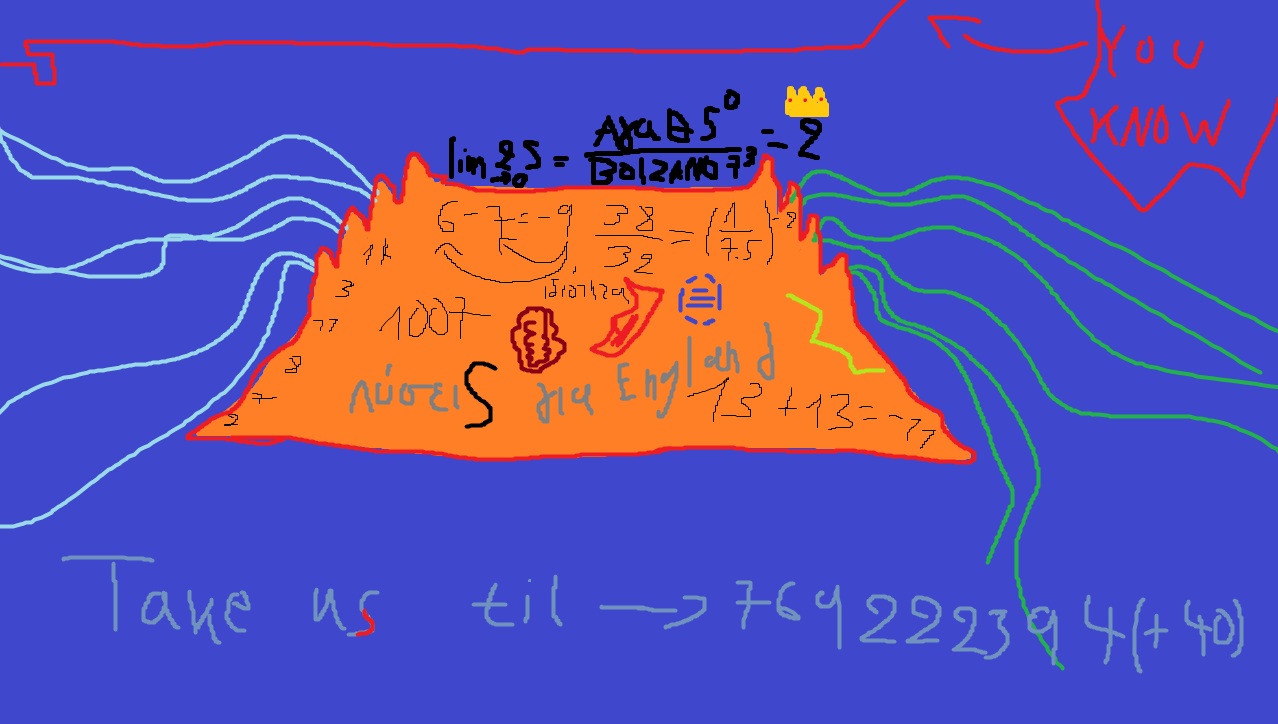 YOU
KNOW
lim
→0 S = Αγα Θ 5⁰ / BOlZANO 7³ = 2
6-7=-9 38/32 = (1/7.5)⁻²
11
3
ιδιότητα
77
1007
3
λύσειS για England
7
13+13=-77
2
Take us til → 769222394(+40)